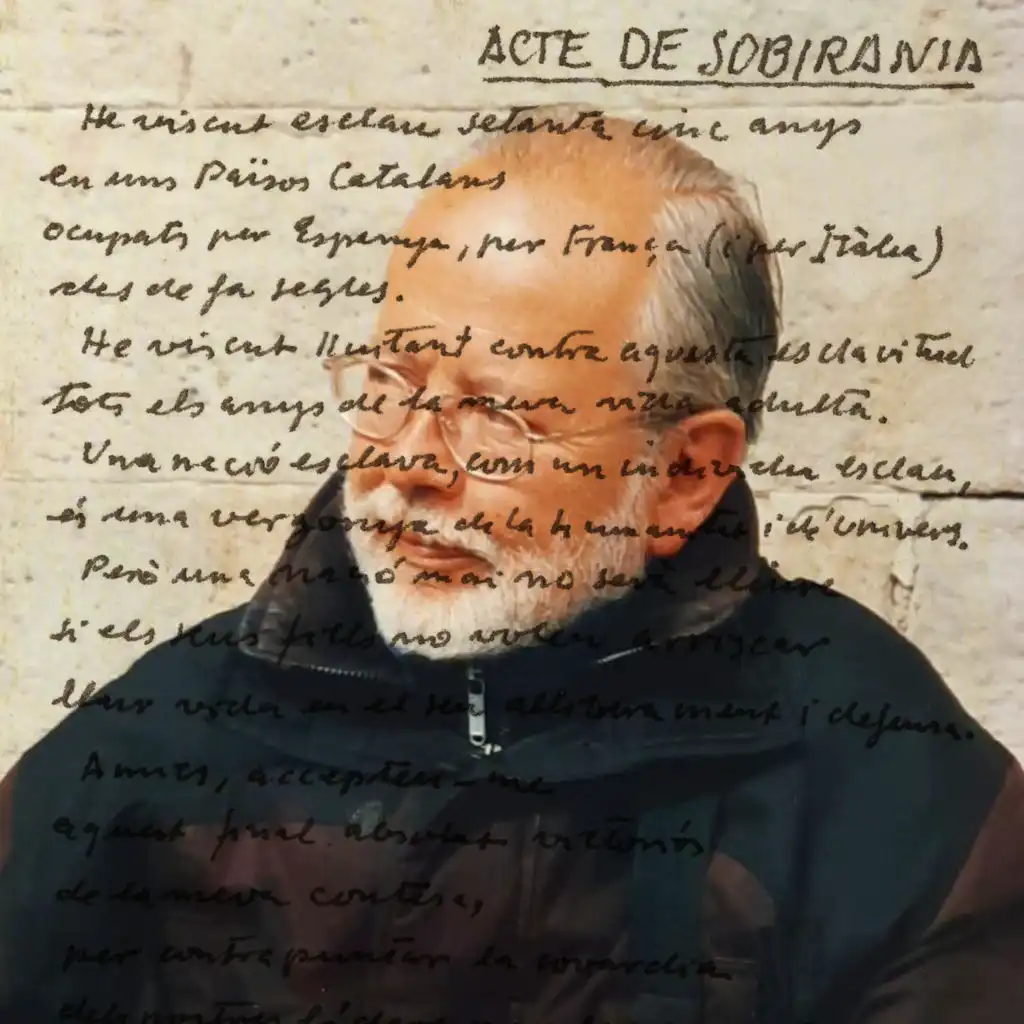 ACTE DE SOBIRANIA
He viscut esclau setanta cinc anys
en uns Països Catalans
ocupats per Espanya, per França (i per Itàlia)
des de fa segles.
He viscut lluitant contra aquesta esclavitud
tots els anys de la meva vida adulta.
Una nació esclava, com un individu esclau,
és una vergonya de la humanitat i de l'univers.
Però una nació mai no serà lliure
si els seus fills no volen arriscar
llur vida en el seu alliberament i defensa.
Amics, accepteu-me
aquest final absolut victoriós
de la meva contesa,
per contrapuntar la covardia
dels nostres líders